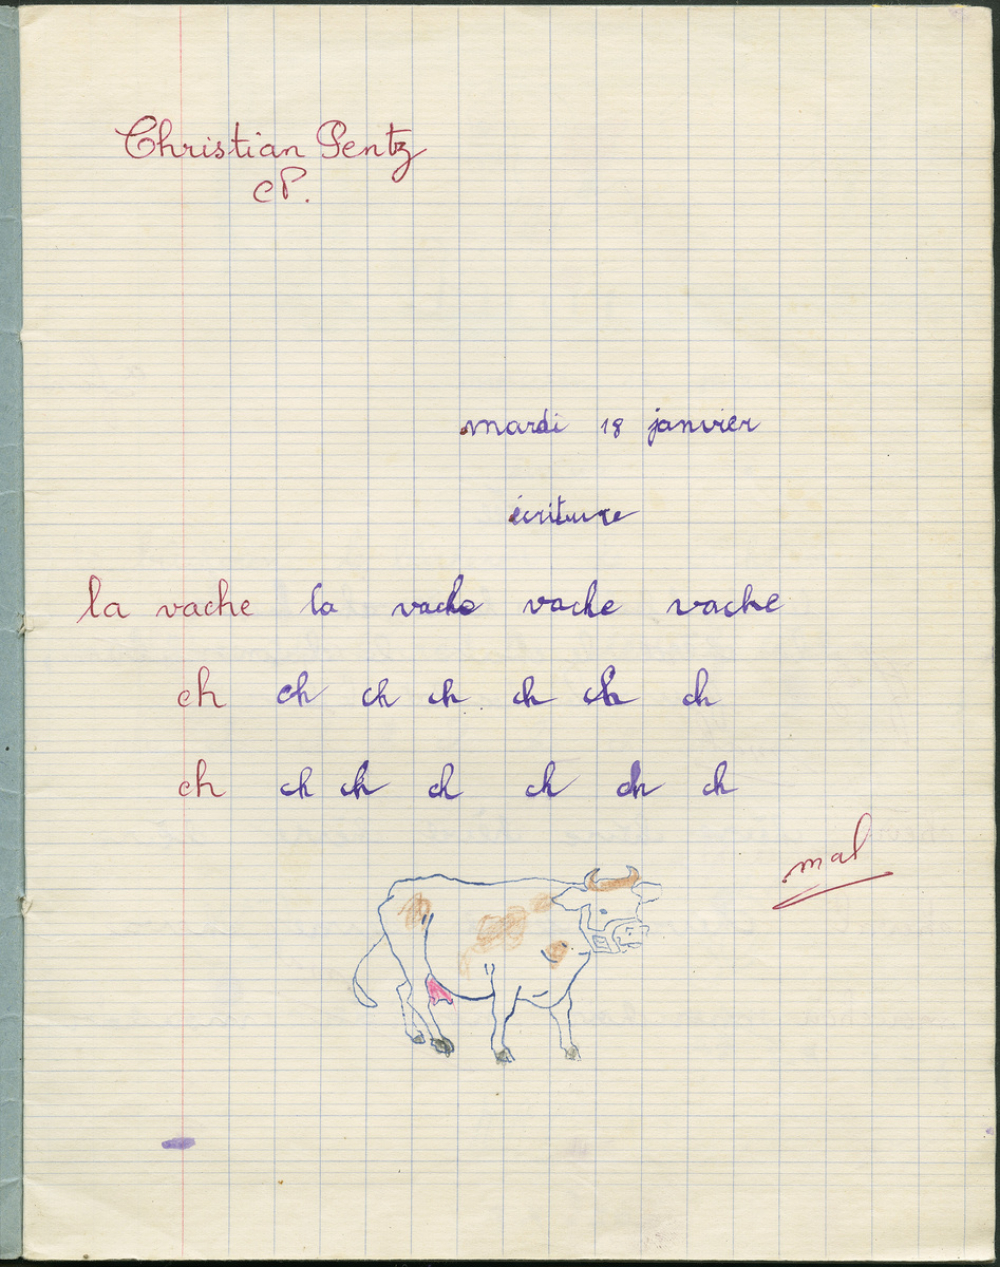 Christian Pentz
CP.
mardi 18 janvier
écriture
la vache la vache vache vache
ch ch ch ch ch ch ch
ch ch ch ch ch ch ch
mal